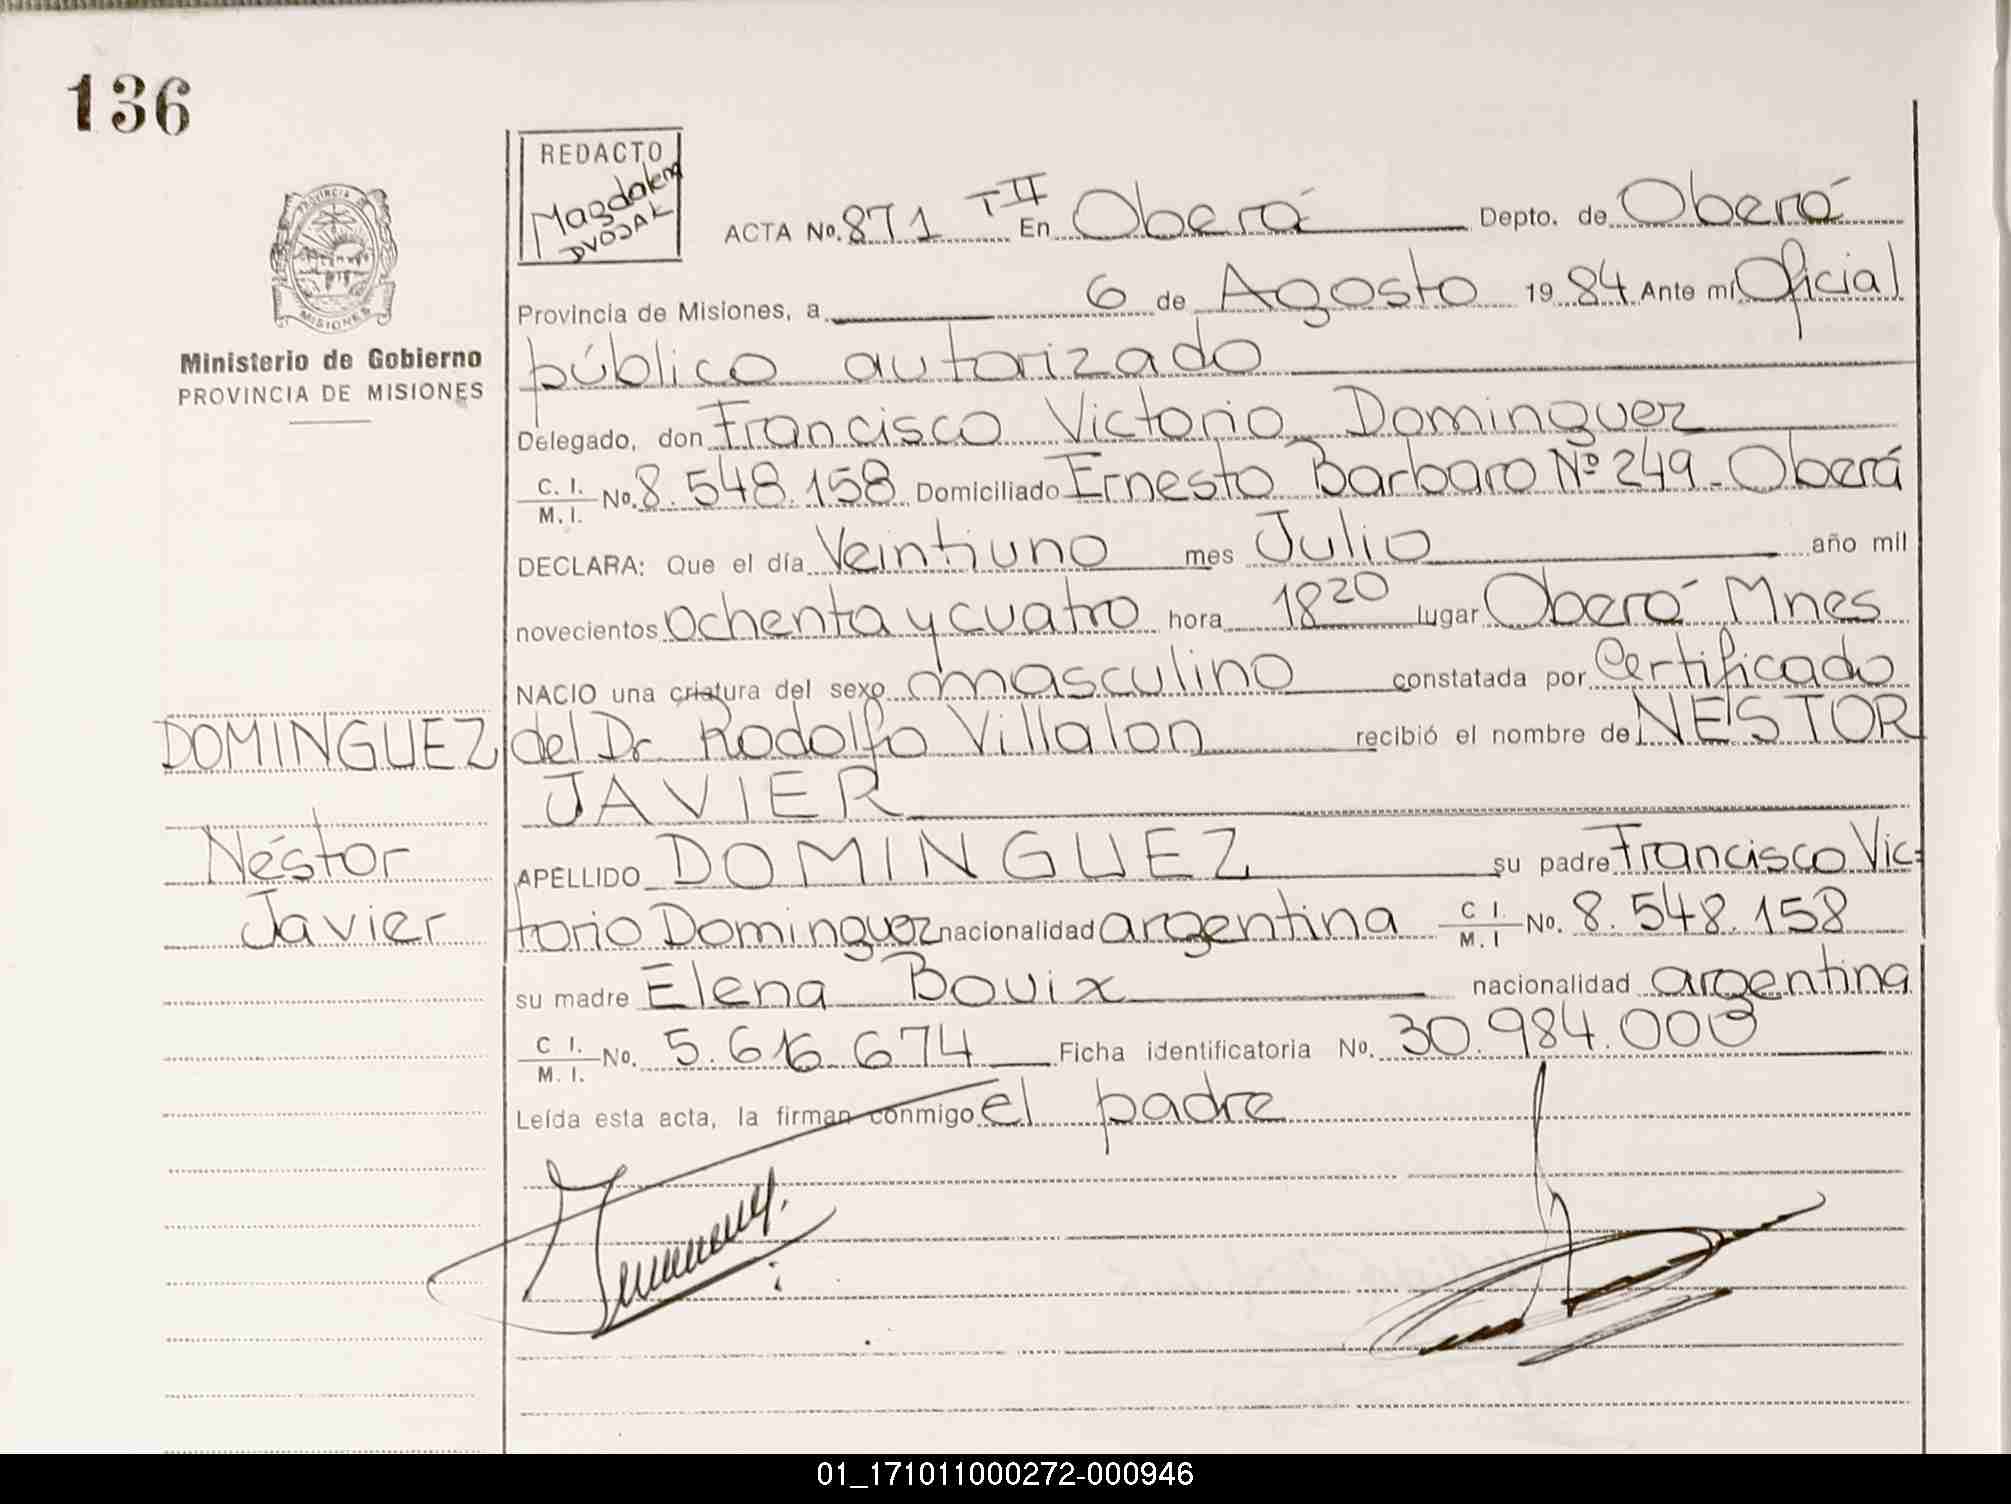 136
REDACTO
Magdalena
DVOJAK
PROVINCIA
MISIONES
Ministerio de Gobierno
PROVINCIA DE MISIONES
ACTA No. 871 T II En Oberá Depto. de Oberá
Provincia de Misiones, a 6 de Agosto 1984 Ante mí Oficial
público autorizado
Delegado, don Francisco Victorio Dominguez
C. I. / M. I. No. 8.548.158 Domiciliado Ernesto Barbaro Nº 249 - Oberá
DECLARA: Que el día Veintiuno mes Julio año mil
novecientos ochenta y cuatro hora 18 20 lugar Oberá Mnes
NACIO una criatura del sexo masculino constatada por Certificado
del Dr. Rodolfo Villalon recibió el nombre de NESTOR
JAVIER
APELLIDO DOMINGUEZ su padre Francisco Vic=
torio Dominguez nacionalidad argentina C I. / M. I No. 8.548.158
su madre Elena Bouix nacionalidad argentina
C I. / M. I. No. 5.616.674 Ficha identificatoria No. 30.984.000
Leída esta acta, la firman conmigo el padre
DOMINGUEZ
Néstor
Javier
01_171011000272-000946